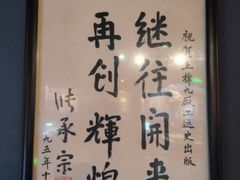 祝贺上棉九厂工运史出版
继往开来
再创辉煌
张承宗
九五年十